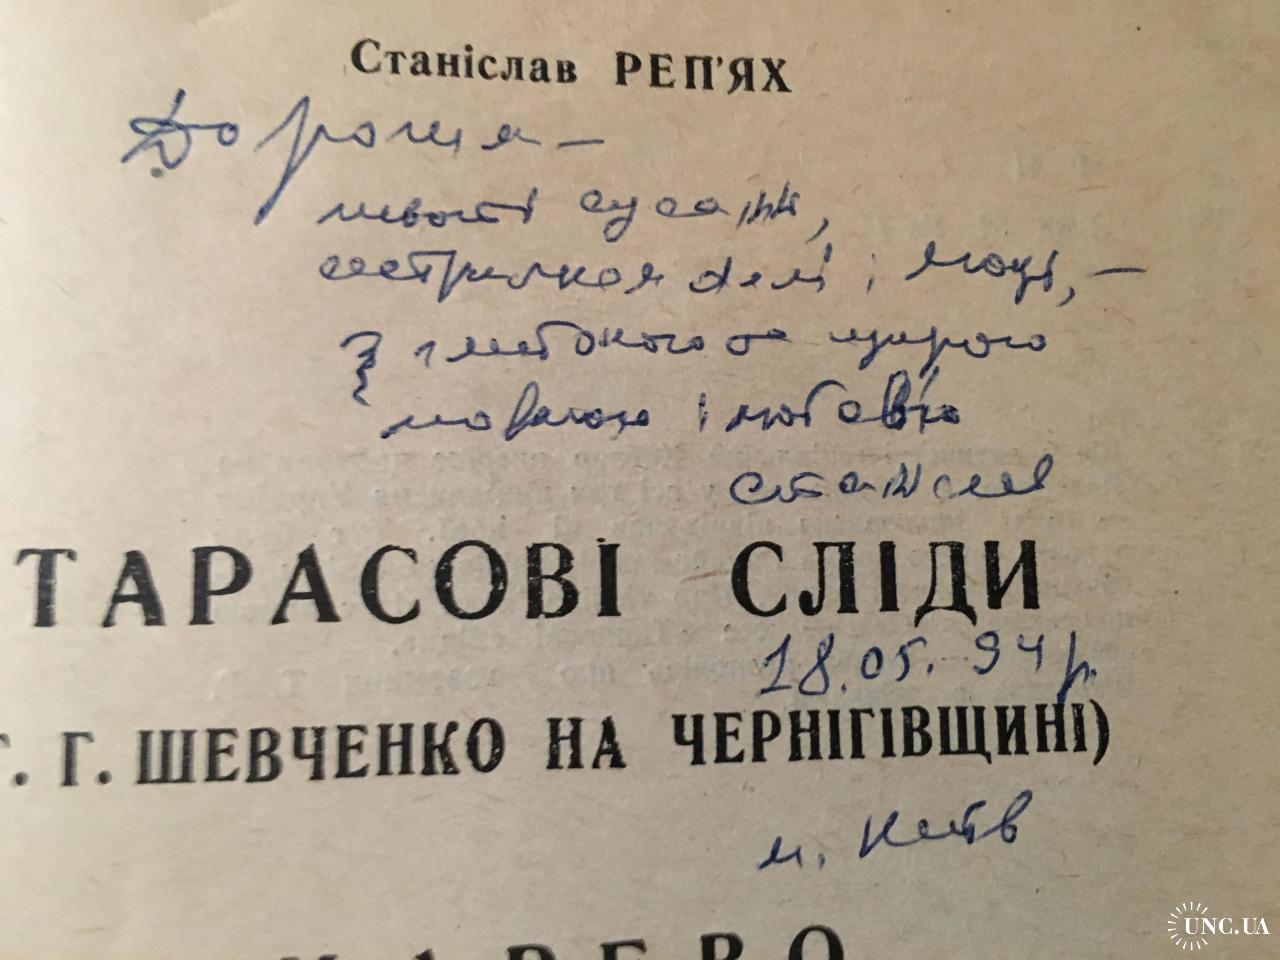 Станіслав РЕП'ЯХ
Дорогим —
сестричкам Олі і
З глибокою та щирою
повагою і любов'ю
Станіслав
ТАРАСОВІ СЛІДИ
18.05.94 р.
Г. ШЕВЧЕНКО НА ЧЕРНІГІВЩИНІ)
м. Київ
UNC.UA